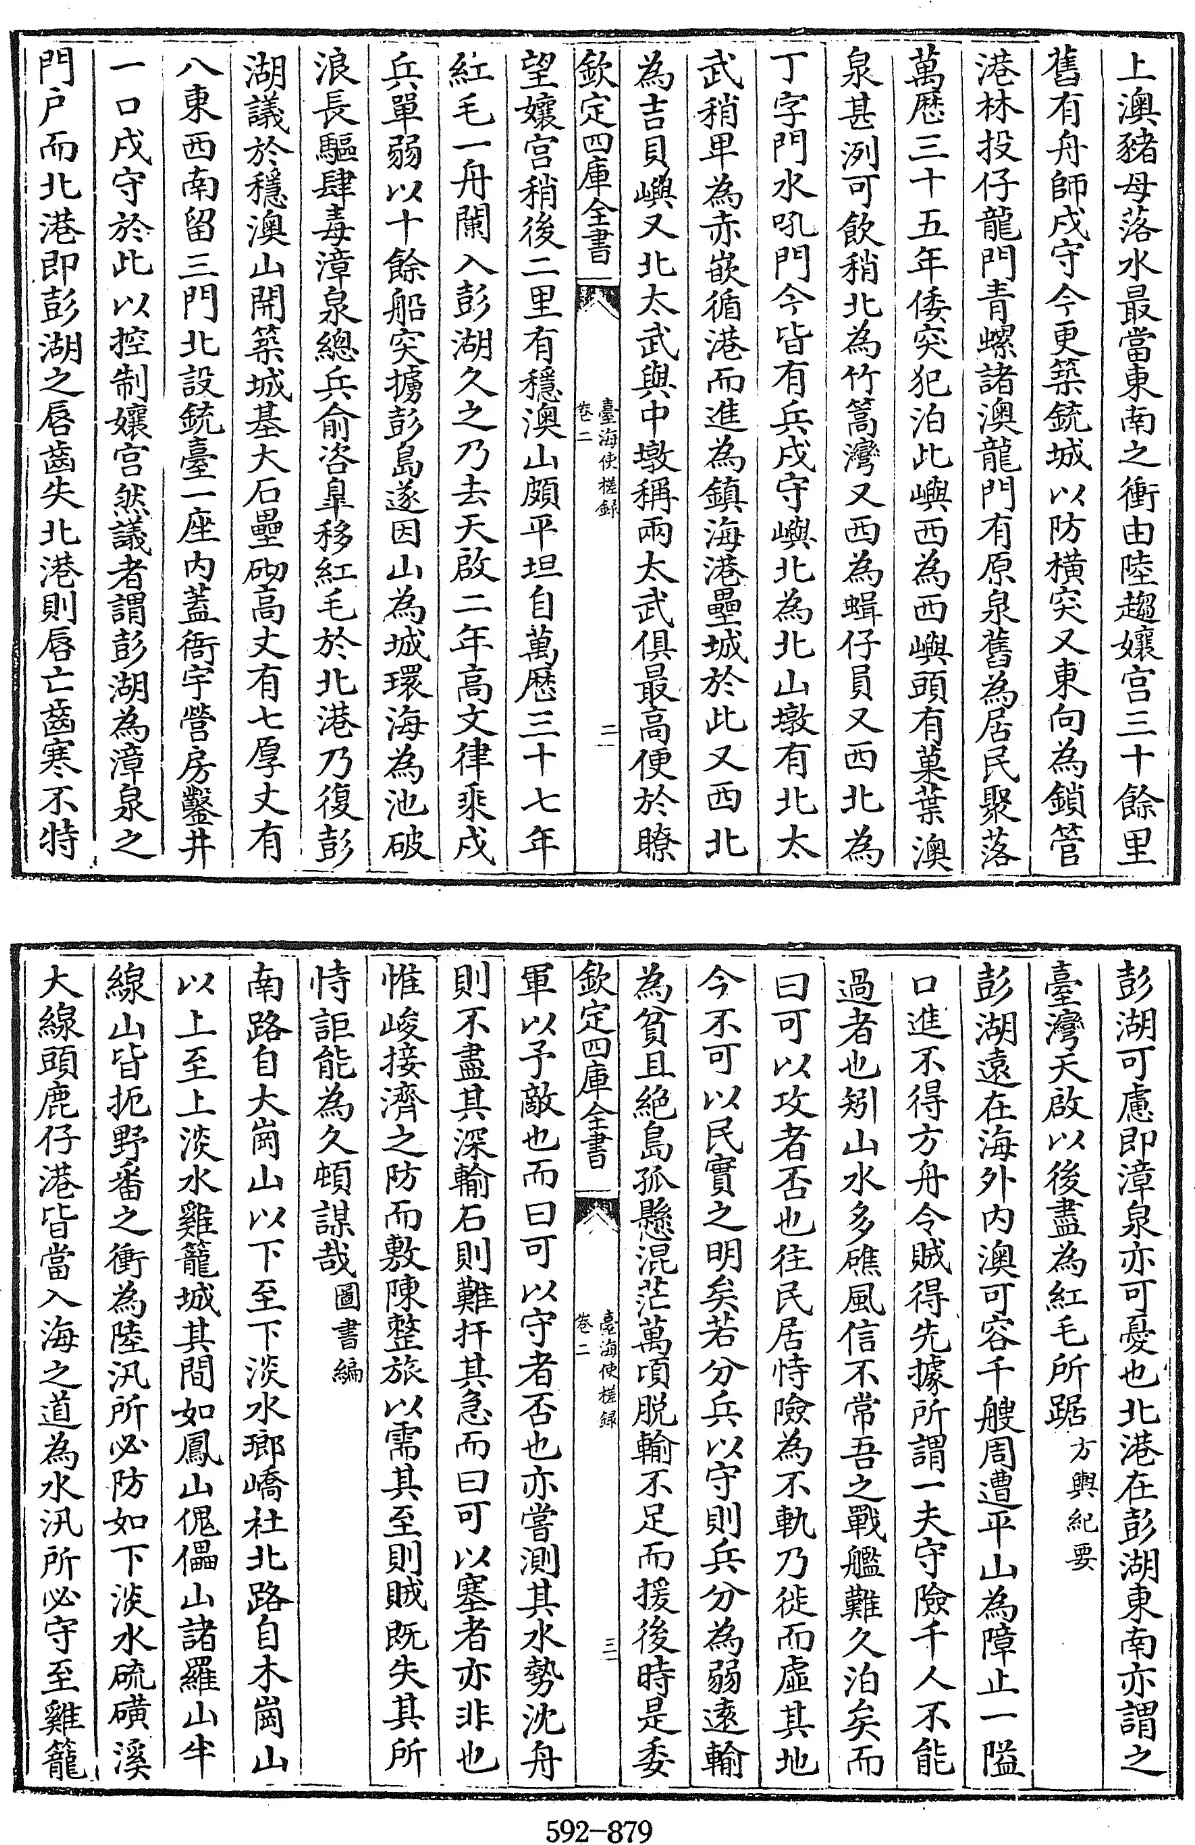 上澳豬母落水最當東南之衝由陸趨孃宫三十餘里
舊有舟師戍守今更築銃城以防横突又東向為鎖管
港林投仔龍門青螺諸澳龍門有原泉舊為居民聚落
萬厯三十五年倭突犯泊此嶼西為西嶼頭有菓葉澳
泉甚洌可飲稍北為竹篙灣又西為蝟仔員又西北為
丁字門水吼門今皆有兵戍守嶼北為北山墩有北太
武稍卑為赤嵌循港而進為鎮海港壘城於此又西北
為吉貝嶼又北太武與中墩稱兩太武俱最高便於瞭
欽定四庫全書
臺海使槎録
卷二
二
望孃宫稍後二里有穩澳山頗平坦自萬厯三十七年
紅毛一舟闌入彭湖久之乃去天啟二年高文律乘戍
兵單弱以十餘船突擄彭島遂因山為城環海為池破
浪長驅肆毒漳泉總兵俞咨臯移紅毛於北港乃復彭
湖議於穩澳山開築城基大石壘砌高丈有七厚丈有
八東西南留三門北設銃臺一座内蓋衙宇營房鑿井
一口戍守於此以控制孃宫然議者謂彭湖為漳泉之
門户而北港即彭湖之唇齒失北港則唇亡齒寒不特
彭湖可慮即漳泉亦可憂也北港在彭湖東南亦謂之
臺灣天啟以後盡為紅毛所踞方輿紀要
彭湖遠在海外内澳可容千艘周遭平山為障止一隘
口進不得方舟令賊得先據所謂一夫守險千人不能
過者也矧山水多礁風信不常吾之戰艦難久泊矣而
曰可以攻者否也往民居恃險為不軌乃徙而虛其地
今不可以民實之明矣若分兵以守則兵分為弱遠輸
為貧且絶島孤懸混茫萬頃脱輸不足而援後時是委
欽定四庫全書
臺海使槎録
卷二
三
軍以予敵也而曰可以守者否也亦嘗測其水勢沈舟
則不盡其深輸石則難扞其急而曰可以塞者亦非也
惟峻接濟之防而敷陳整旅以需其至則賊既失其所
恃詎能為久頓謀哉圖書編
南路自大崗山以下至下淡水瑯嶠社北路自木崗山
以上至上淡水雞籠城其間如鳳山傀儡山諸羅山半
線山皆扼野番之衝為陸汛所必防如下淡水硫磺溪
大線頭鹿仔港皆當入海之道為水汛所必守至雞籠
592-879